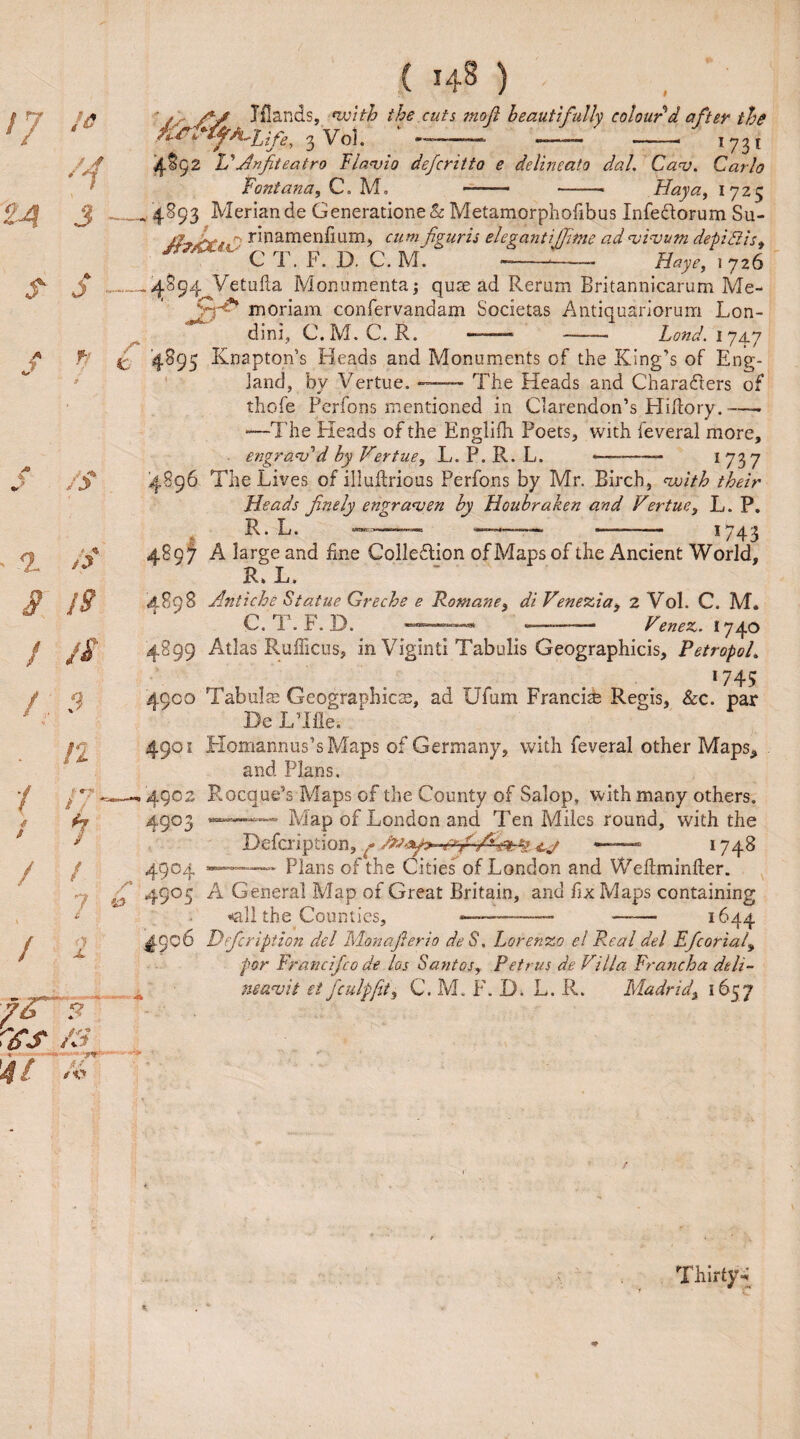 ( 148 )
Iſlands, with the cuts moſt beautifully colour'd after the
Life, 3 Vol. —— —— —— 1731
17 10
4892 L'Anfiteatro Flavio deſcritto e delineato dal. Cav. Carlo
14
Fontana, C. M. —— —— Haya, 1725
24 3 — 4893 Merian de Generatione & Metamorphoſibus Inſectorum Su-
rinamenſium, cum figuris elegantiſſime ad vivum depictis,
C T. F. D. C. M. —— Haye, 1726
5 5 — 4894 Vetuſta Monumenta; quæ ad Rerum Britannicarum Me-
moriam conſervandam Societas Antiquariorum Lon-
dini, C. M. C. R. —— —— Lond. 1747
5 7 6 4895 Knapton's Heads and Monuments of the King's of Eng-
land, by Vertue. —— The Heads and Characters of
thoſe Perſons mentioned in Clarendon's Hiſtory. ——
—The Heads of the Engliſh Poets, with ſeveral more,
engrav'd by Vertue, L. P. R. L. —— 1737
5 15 4896 The Lives of illuſtrious Perſons by Mr. Birch, with their
Heads finely engraven by Houbraken and Vertue, L. P.
R. L. —— —— —— 1743
2 15 4897 A large and fine Collection of Maps of the Ancient World,
R. L.
8 18 4898 Antiche Statue Greche e Romane, di Venezia, 2 Vol. C. M.
C. T. F. D. —— —— Venez. 1740
1 18 4899 Atlas Ruſſicus, in Viginti Tabulis Geographicis, Petropol.
1745
1 9 4900 Tabulæ Geographicæ, ad Uſum Franciæ Regis, &c. par
De L'Iſle.
12 4901 Homannus's Maps of Germany, with ſeveral other Maps,
and Plans.
1 17 — 4902 Rocque's Maps of the County of Salop, with many others.
4903 —— Map of London and Ten Miles round, with the
Deſcription, —— 1748
1 1 4904 —— Plans of the Cities of London and Weſtminſter.
7 6 4905 A General Map of Great Britain, and ſix Maps containing
all the Counties, —— —— 1644
1 2 4906 Deſcription del Monaſterio de S. Lorenzo el Real del Eſcorial,
por Franciſco de los Santos, Petrus de Villa Francha deli-
neavit et ſculpſit, C. M. F. D. L. R. Madrid, 1657
Thirty-